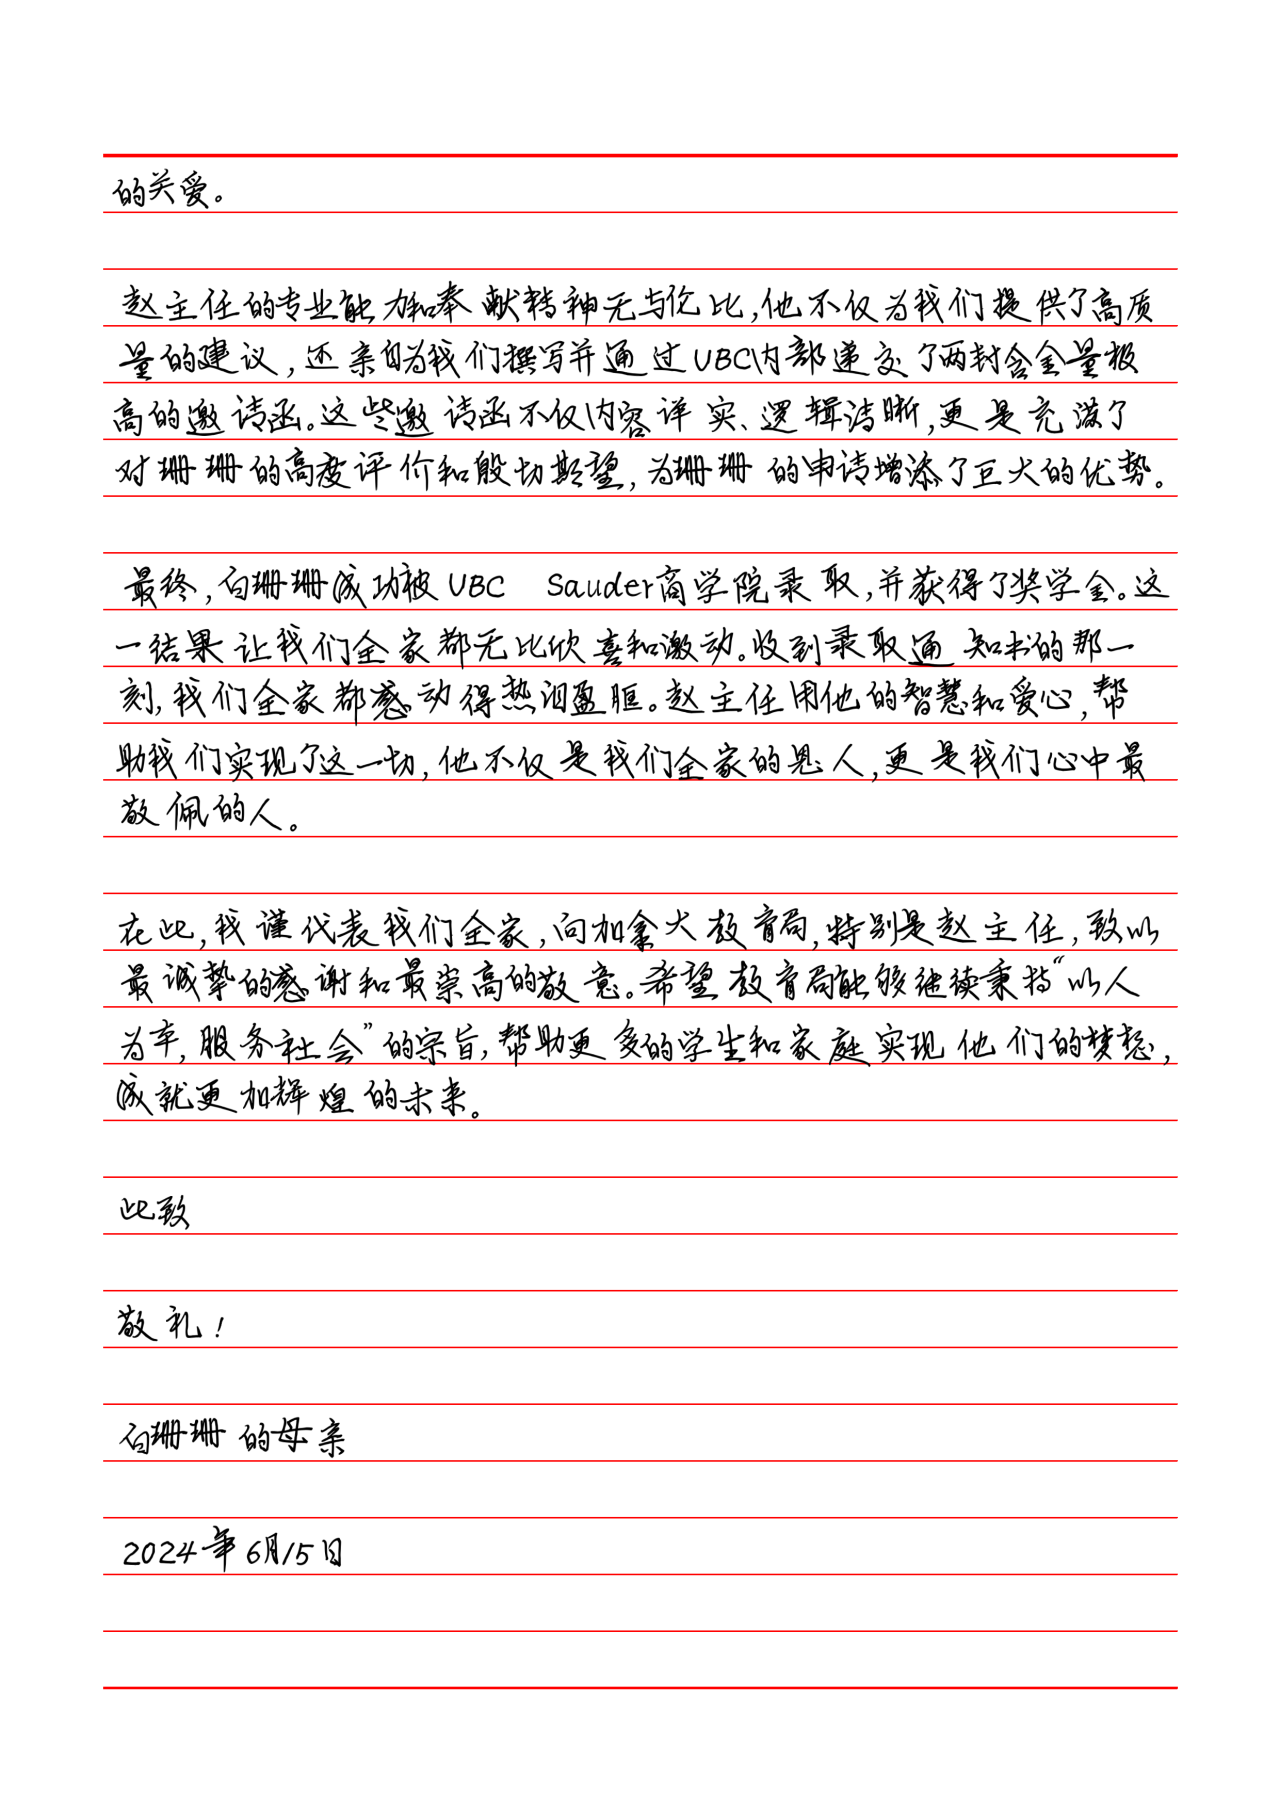 的关爱。
赵主任的专业能力和奉献精神无与伦比,他不仅为我们提供了高质
量的建议,还亲自为我们撰写并通过UBC内部递交了两封含金量极
高的邀请函。这些邀请函不仅内容详实、逻辑清晰,更是充满了
对珊珊的高度评价和殷切期望,为珊珊的申请增添了巨大的优势。
最终,白珊珊成功被UBC Sauder商学院录取,并获得了奖学金。这
一结果让我们全家都无比欣喜和激动。收到录取通知书的那一
刻,我们全家都感动得热泪盈眶。赵主任用他的智慧和爱心,帮
助我们实现了这一切,他不仅是我们全家的恩人,更是我们心中最
敬佩的人。
在此,我谨代表我们全家,向加拿大教育局,特别是赵主任,致以
最诚挚的感谢和最崇高的敬意。希望教育局能够继续秉持“以人
为本,服务社会”的宗旨,帮助更多的学生和家庭实现他们的梦想,
成就更加辉煌的未来。
此致
敬礼!
白珊珊的母亲
2024年6月15日